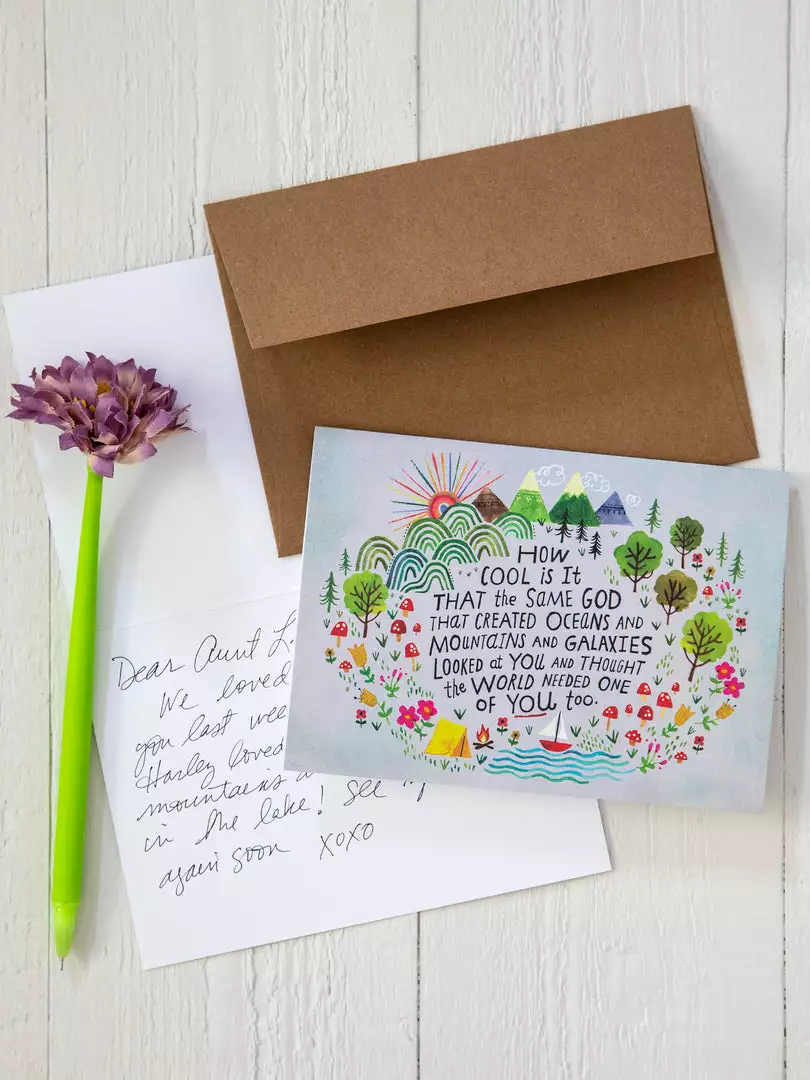 HOW
COOL is It
THAT the SAME GOD
THAT CREATED OCEANS AND
MOUNTAINS AND GALAXIES
LOOKED at YOU AND THOUGHT
the WORLD NEEDED ONE
OF YOU too.
Dear Aunt L
We loved
you last
Harley loved
mountains
in the lake! See
again soon XOXO